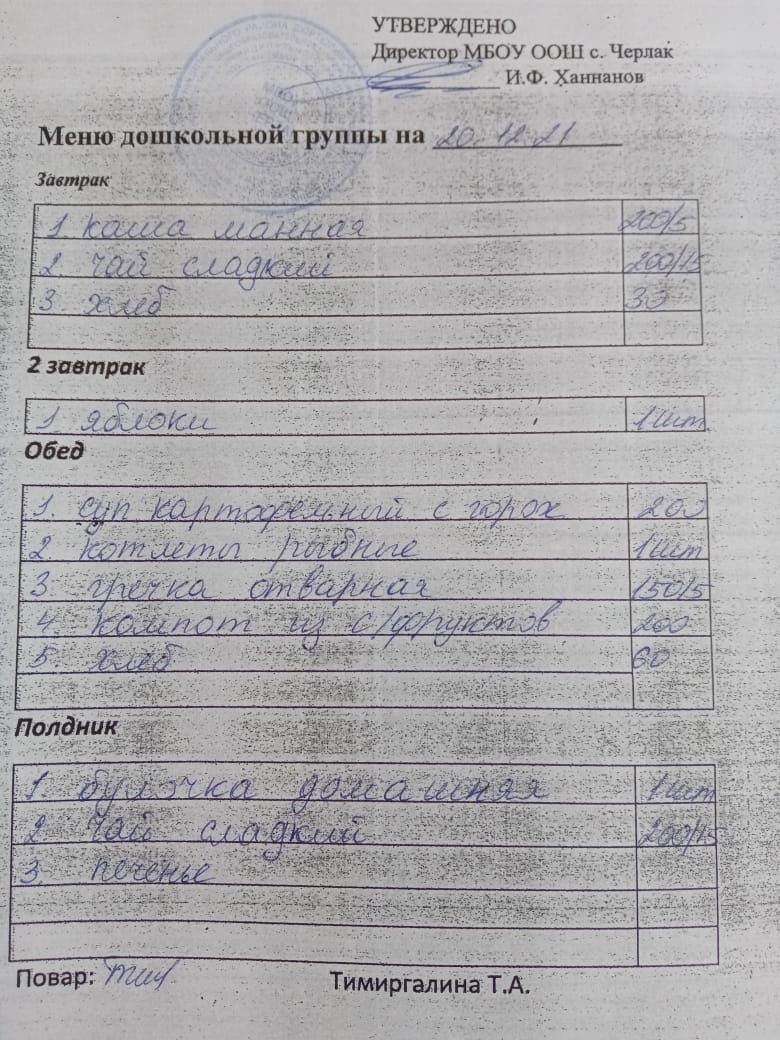 УТВЕРЖДЕНО
Директор МБОУ ООШ с. Черлак
И.Ф. Ханнанов
Меню дошкольной группы на 20.12.21
Завтрак
1. каша манная 200/5
2. чай сладкий 200/15
3. хлеб 30
2 завтрак
1. яблоки 1 шт
Обед
1. суп картофельный с горох 200
2 котлеты рыбные 1 шт
3. гречка отварная 150/5
4. компот из с/фруктов 200
5. хлеб 60
Полдник
1. булочка домашняя 1 шт
2. чай сладкий 200/15
3. печенье
Повар: Тимиргалина Т.А.